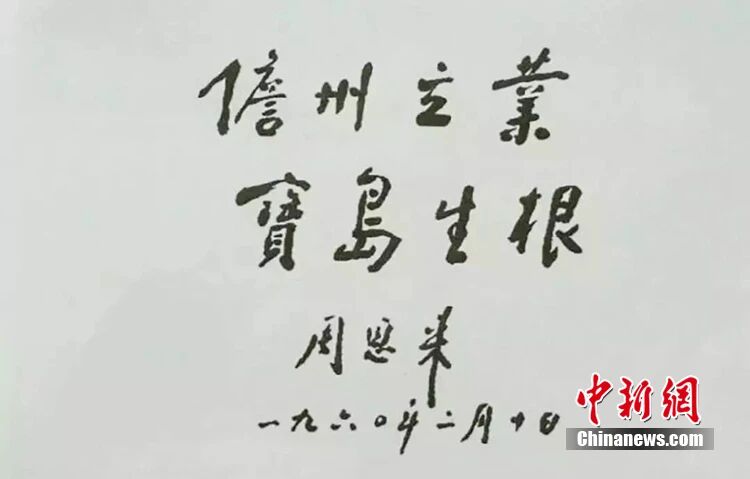 儋州立業
寶島生根
周恩来
一九六〇年二月十日
中新網
Chinanews.com